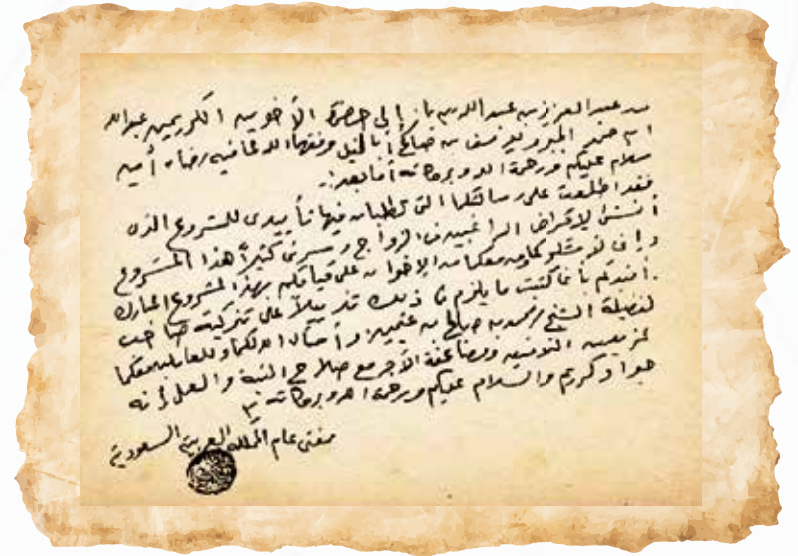 من عبد العزيز بن عبد الله بن باز إلى حضرة الأخوين الكريمين عبد الله
ابن ويوسف بن صالح أبا الخيل وفقهما الله لما فيه رضاه آمين
سلام عليكم ورحمة الله وبركاته أما بعد:
فقد اطلعت على رسالتكما التي تطلبان فيها تأييدي للمشروع الذي
أنشئ لإقراض الراغبين في الزواج وسرني كثيراً هذا المشروع
وإني لأشكركما ومن معكما من الإخوان على قيامكم بهذا المشروع المبارك
وأفيدكم بأنا كتبنا ما يلزم في ذلك تذييلاً على تزكية صاحب
الفضيلة الشيخ محمد بن صالح بن عثيمين وأسأل الله لكما وللعاملين معكما
المزيد من التوفيق ومضاعفة الأجر مع صلاح النية والعمل إنه
جواد كريم والسلام عليكم ورحمة الله وبركاته
مفتي عام المملكة العربية السعودية